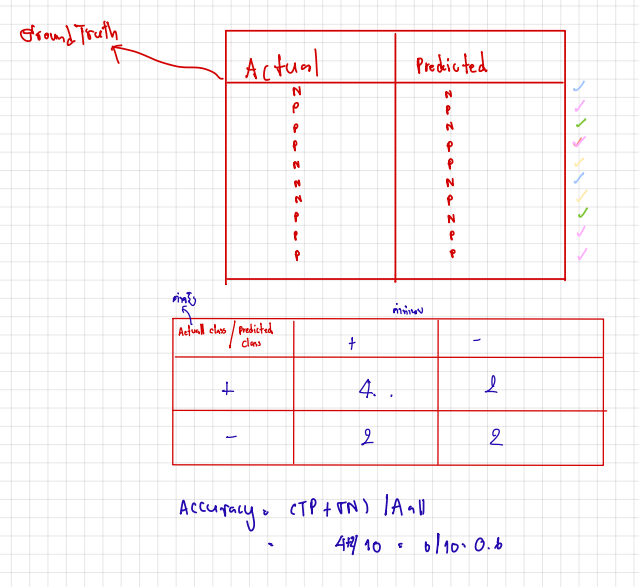 Ground Truth
Actual Predicted
N N
P P
P N
P P
N P
N N
N P
P N
P P
P P
ค่าจริง ค่าทำนาย
Actuall class / Predicted class + -
+ 4 2
- 2 2
Accuracy = (TP + TN) / All
= 4+2/10 = 6/10 = 0.6